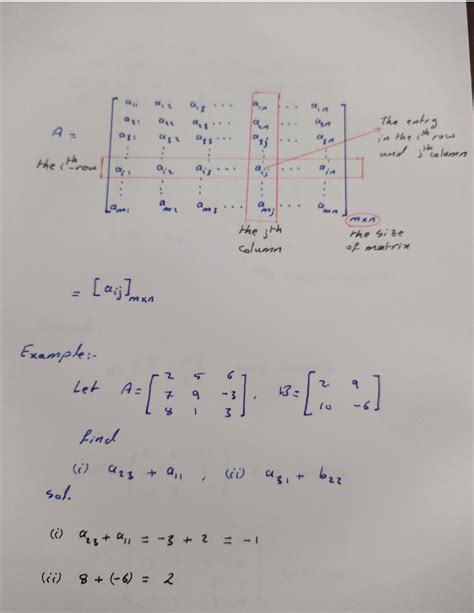 A = [ a11 a12 a13 ... a1n ... a1n
a21 a22 a23 ... a2n ... a2n
a31 a32 a33 ... a3j ... a3n
the ith-row ai1 ai2 ai3 ... aij ... ain
am1 am2 am3 ... amj ... amn ] m×n
The entry
in the ith row
and jth column
the jth
column
the size
of matrix
= [aij]m×n
Example:-
Let A = [ 2 5 6
7 9 -3
8 1 3 ] , B = [ 2 9
10 -6 ]
find
(i) a23 + a11 , (ii) a31 + b22
sol.
(i) a23 + a11 = -3 + 2 = -1
(ii) 8 + (-6) = 2